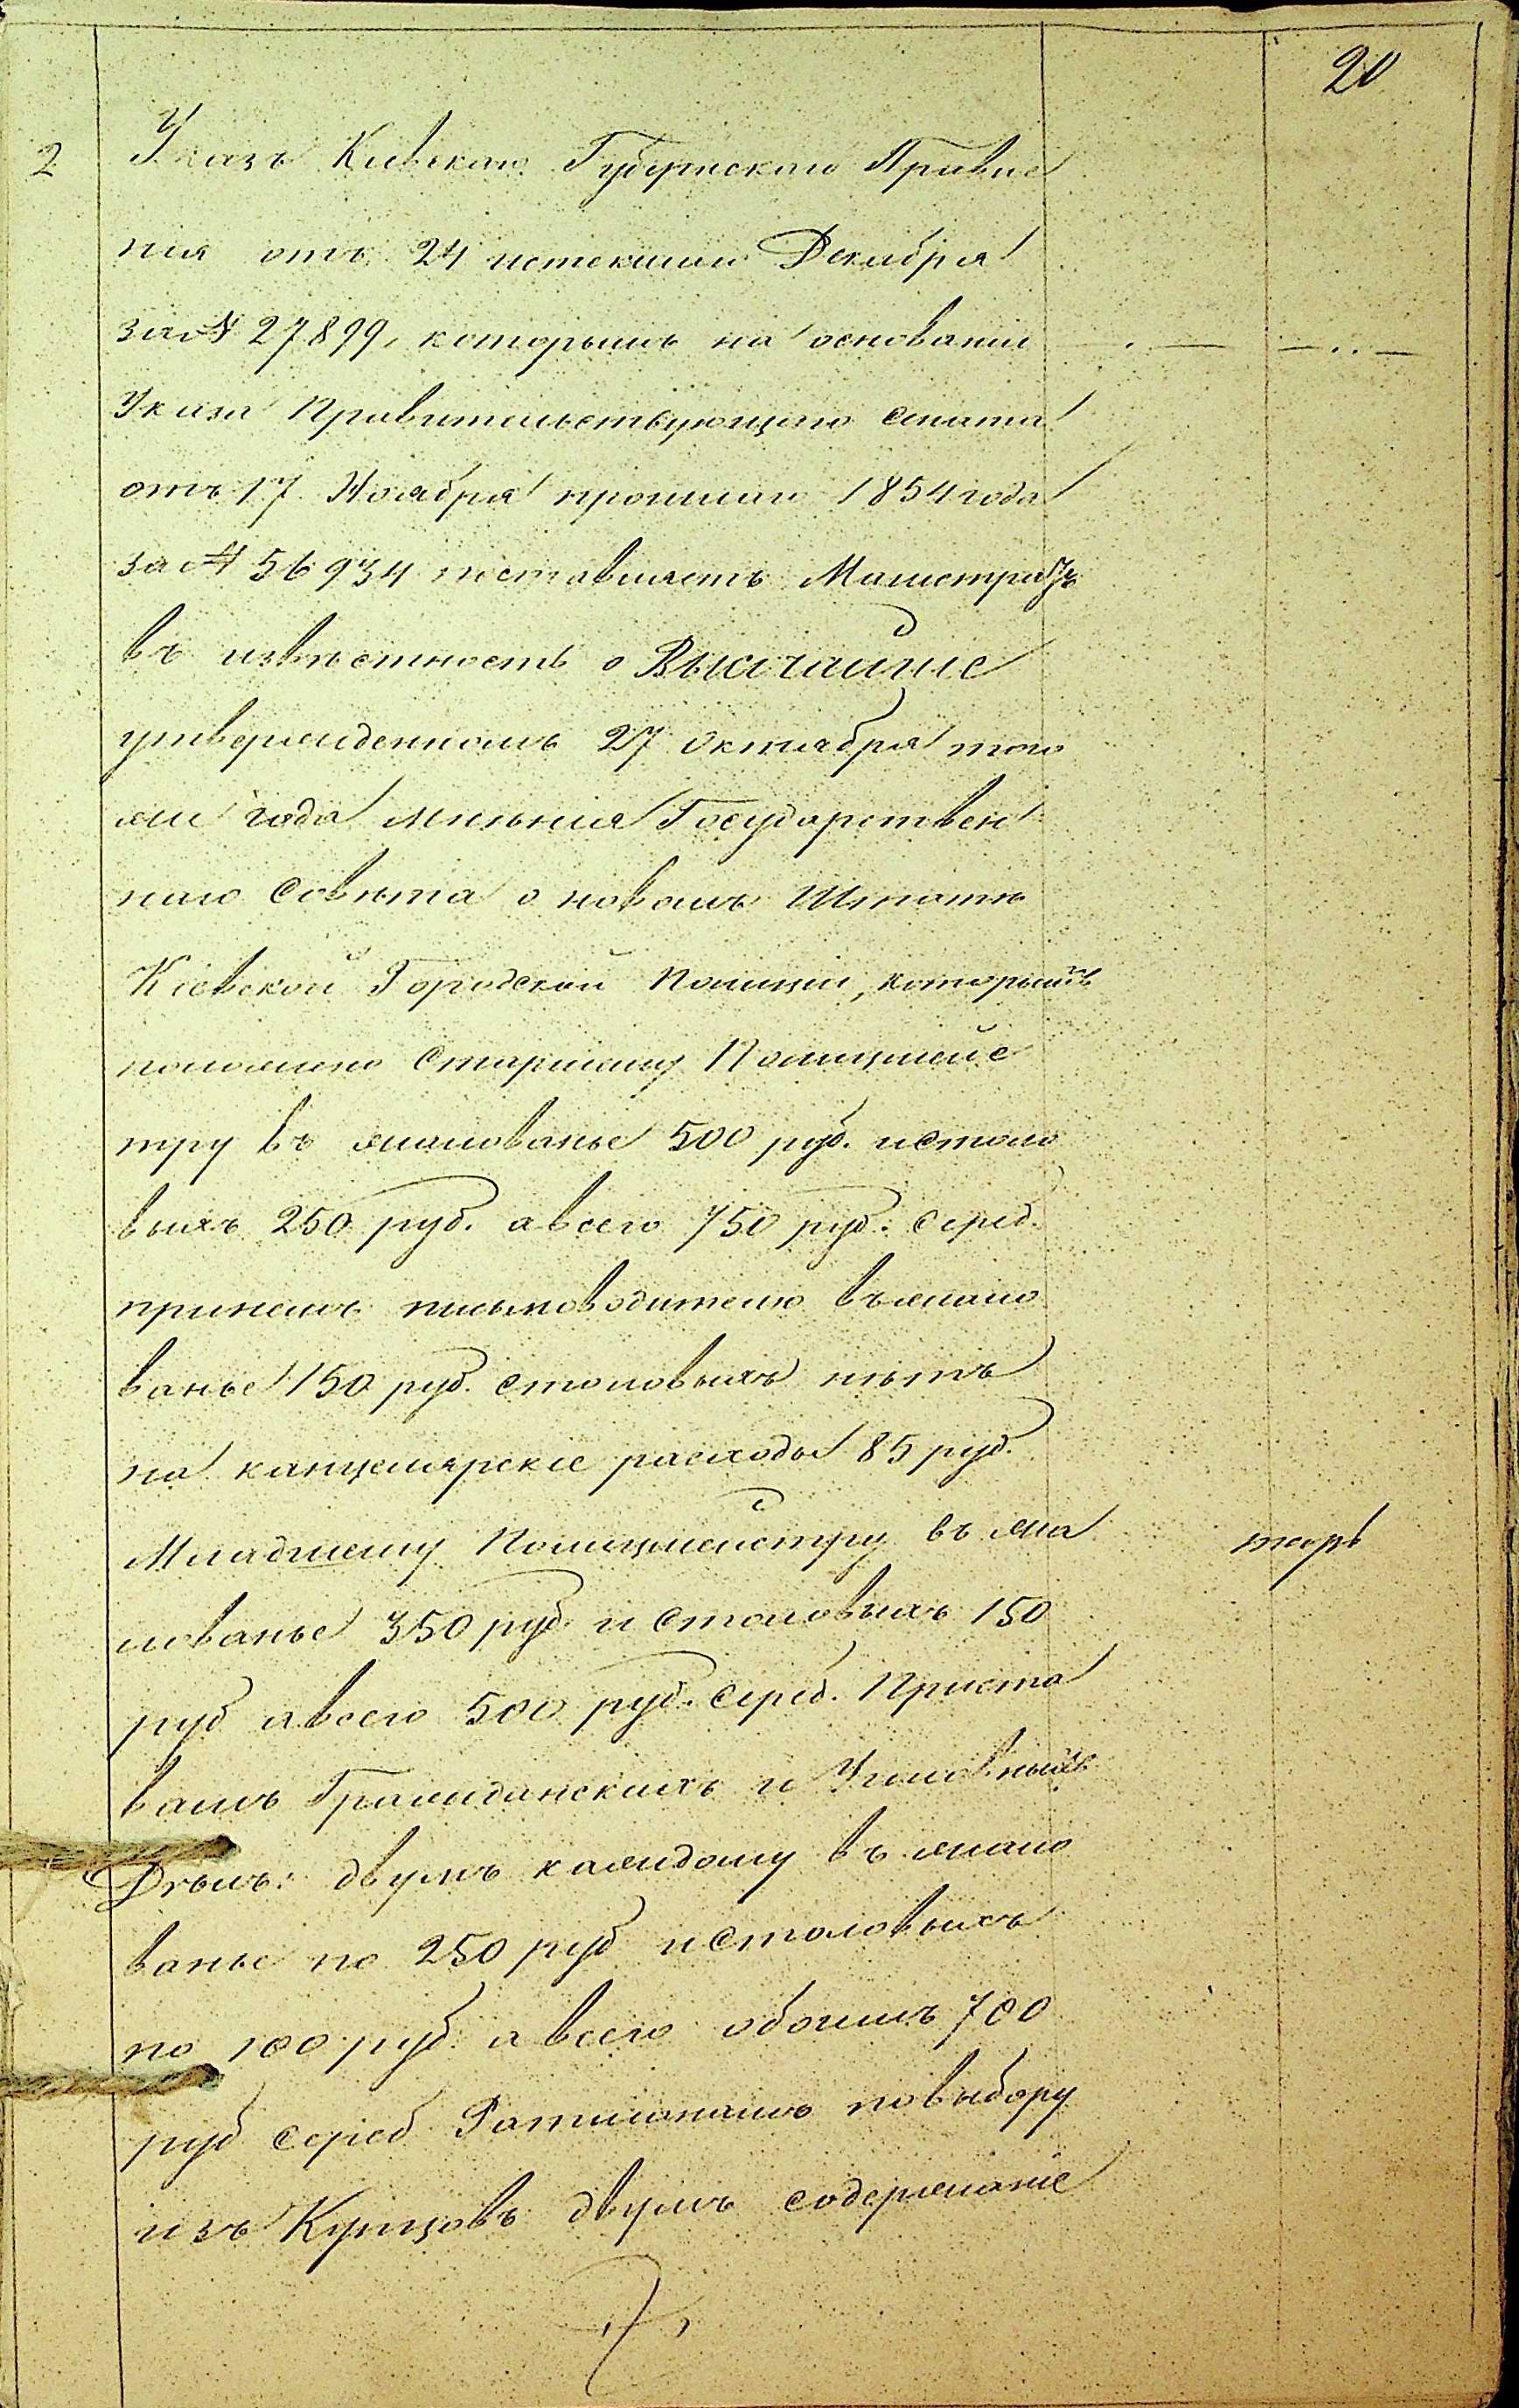 20
2
Указъ Кіевскаго Губернскаго Правле
нія отъ 24 истекшаго Декабря
за № 27899, которымъ на основаніи
Указа Правительствующаго сената
отъ 17 Ноября прошлаго 1854 года
за № 56934 поставляетъ Магистратъ
въ извѣстность о Высочайше
утвержденномъ 27 октября того
же года мнѣнія Государствен
наго Совѣта о новомъ Штатѣ
Кіевской Городской Полиціи, которымъ
положено Старшему Полицмейс
тру въ жалованье 500 руб. и столо
выхъ 250 руб. а всего 750 руб. сереб.
при немъ письмоводителю въ жало
ванье 150 руб. столовыхъ нѣтъ
на канцелярскіе расходы 85 руб.
Младшему Полицмейстру въ жа
лованье 350 руб. и столовыхъ 150
руб а всего 500 руб. сереб. Приста
вамъ Гражданскихъ и Уголовныхъ
Дѣлъ: двумъ каждому въ жало
ванье по 250 руб и столовыхъ
по 100 руб. а всего обоимъ 700
руб сереб Ратманамъ по выбору
изъ Купцовъ двумъ содержаніе